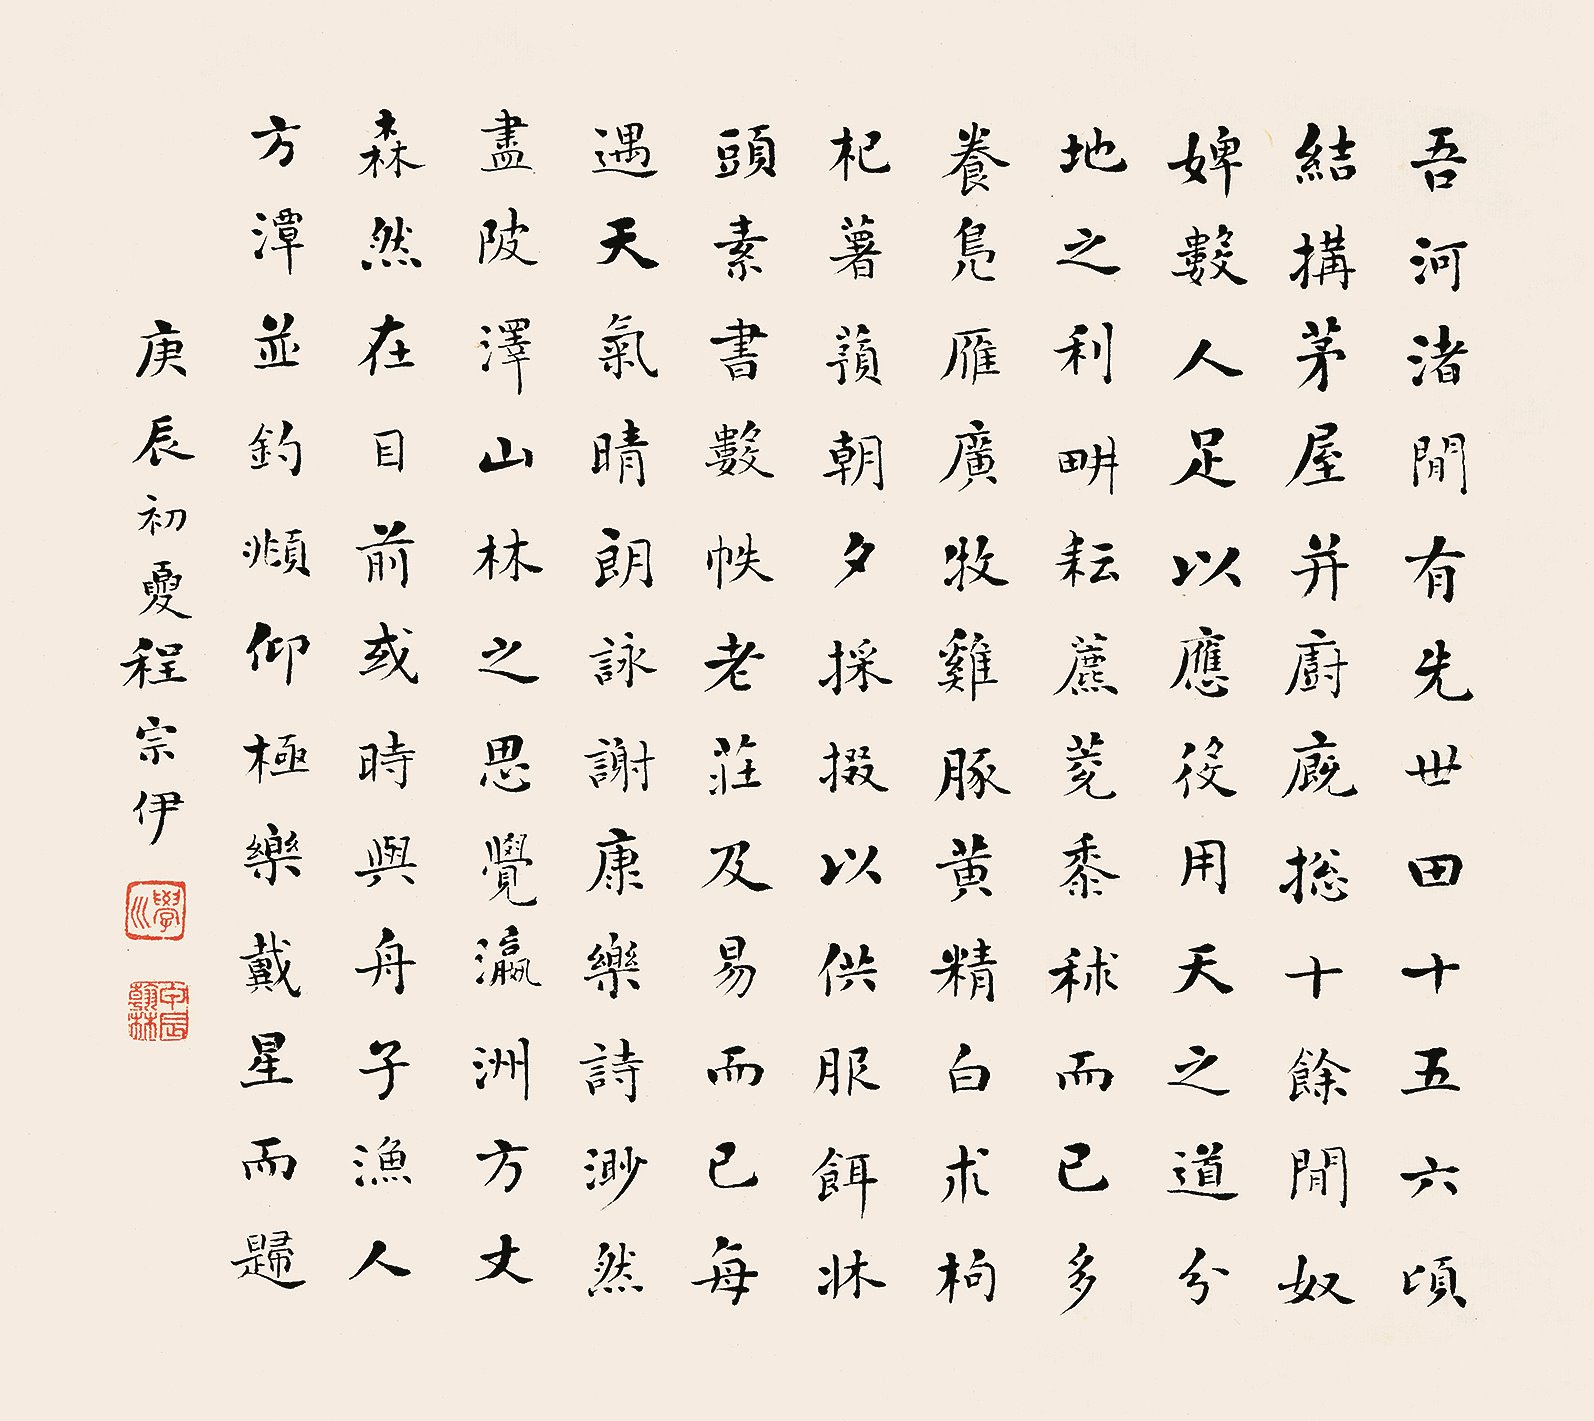 吾河渚間有先世田十五六頃
結搆茅屋并廚廐揔十餘間奴
婢數人足以應役用天之道分
地之利畊耘藨䔖黍秫而已多
養鳧雁廣牧雞豚黃精白朮枸
杞薯蕷朝夕採掇以供服餌牀
頭素書數帙老莊及易而已每
遇天氣晴朗詠謝康樂詩渺然
盡陂澤山林之思覺瀛洲方丈
森然在目前或時與舟子漁人
方潭並釣頫仰極樂戴星而歸
庚辰初夏程宗伊
學川
甲辰翰林